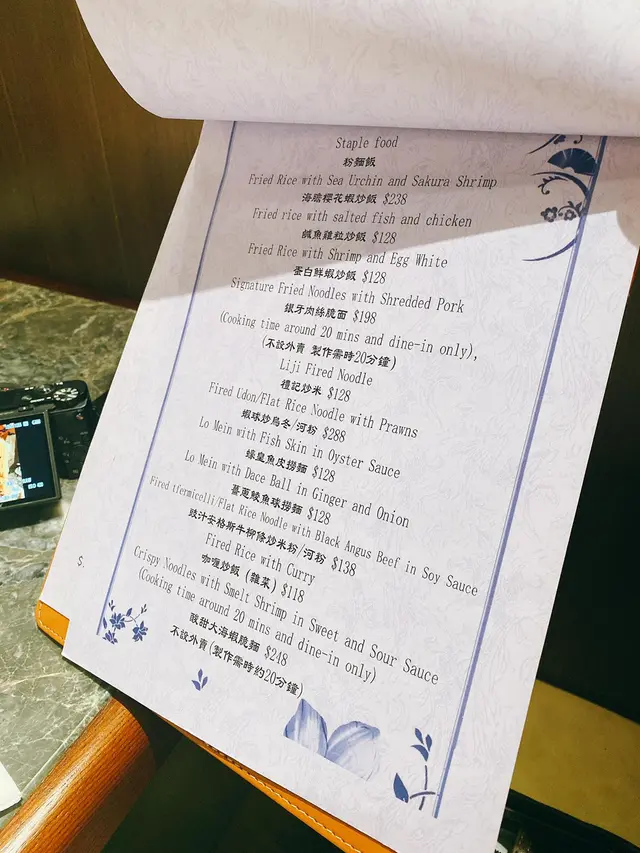 Staple food
粉麵飯
Fried Rice with Sea Urchin and Sakura Shrimp
海膽櫻花蝦炒飯 $238
Fried rice with salted fish and chicken
鹹魚雞粒炒飯 $128
Fried Rice with Shrimp and Egg White
蛋白鮮蝦炒飯 $128
Signature Fried Noodles with Shredded Pork
銀牙肉絲脆面 $198
(Cooking time around 20 mins and dine-in only),
(不設外賣 製作需時20分鐘)
Liji Fired Noodle
禮記炒米 $128
Fired Udon/Flat Rice Noodle with Prawns
蝦球炒烏冬/河粉 $288
Lo Mein with Fish Skin in Oyster Sauce
蠔皇魚皮撈麵 $128
Lo Mein with Dace Ball in Ginger and Onion
薑蔥鯪魚球撈麵 $128
Fired tfermicelli/Flat Rice Noodle with Black Angus Beef in Soy Sauce
豉汁安格斯牛柳條炒米粉/河粉 $138
Fired Rice with Curry
咖喱炒飯 (雜菜) $118
Crispy Noodles with Smelt Shrimp in Sweet and Sour Sauce
(Cooking time around 20 mins and dine-in only)
酸甜大海蝦脆麵 $248
不設外賣(製作需時約20分鐘)
$.